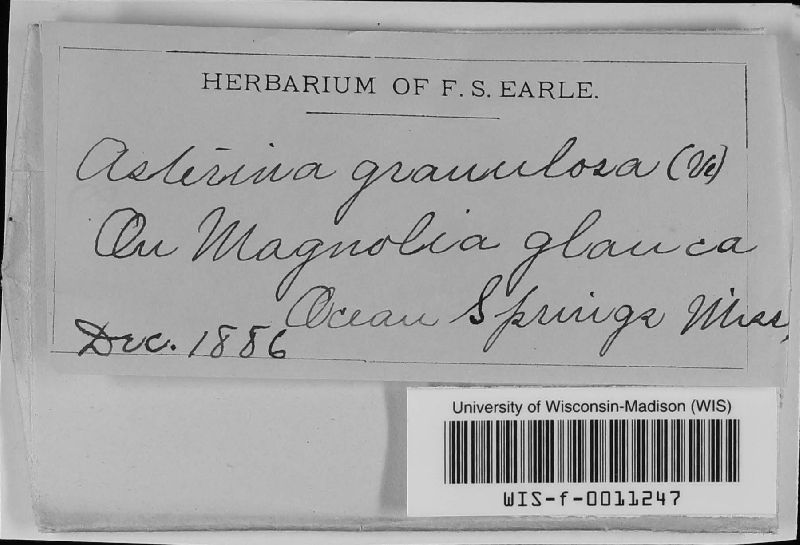 HERBARIUM OF F. S. EARLE.
Asterina granulosa
On Magnolia glauca
Ocean Springs Miss,
Dec. 1886
University of Wisconsin-Madison (WIS)
WIS-f-0011247